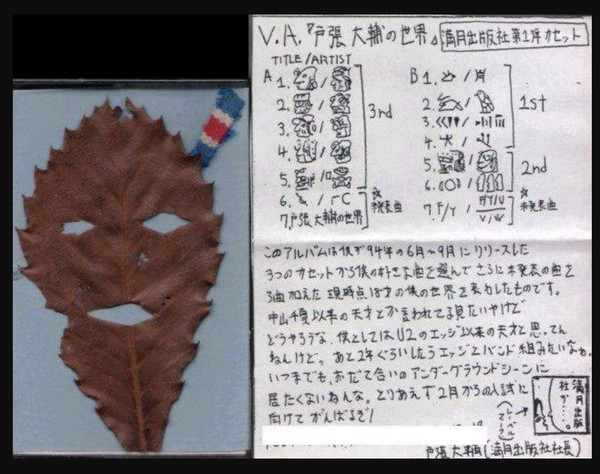 V.A.『戸張大輔の世界』 満月出版社第1弾カセット
TITLE/ARTIST
A 1. /
2. /
3. /
4. /
5. /
3rd
6. /
7. 戸張大輔の世界
未発表曲
B 1. /
2. /
3. /
4. /
1st
5. /
6. /
2nd
7. F/Y /
未発表曲
このアルバムは僕が94年の6月〜9月にリリースした
3つのカセットから僕の好きな曲を選んでさらに未発表の曲を
3曲加えた現時点は
の僕の世界を表わしたものです。
以来の天才とか言われてる見たいやけど
どうやろうな、僕としてはU2のエッジ以来の天才と思ってん
ねんけど。あと2年ぐらいしたらエッジとバンド組みたいなぁ。
いつまでも、おだて合いのアンダーグラウンドシーンに
居たくないねんな。とりあえず2月からの入試に
向けてがんばるぞ!
戸張大輔(満月出版社社長)
満月出版
社か…。
レーベル
マーク